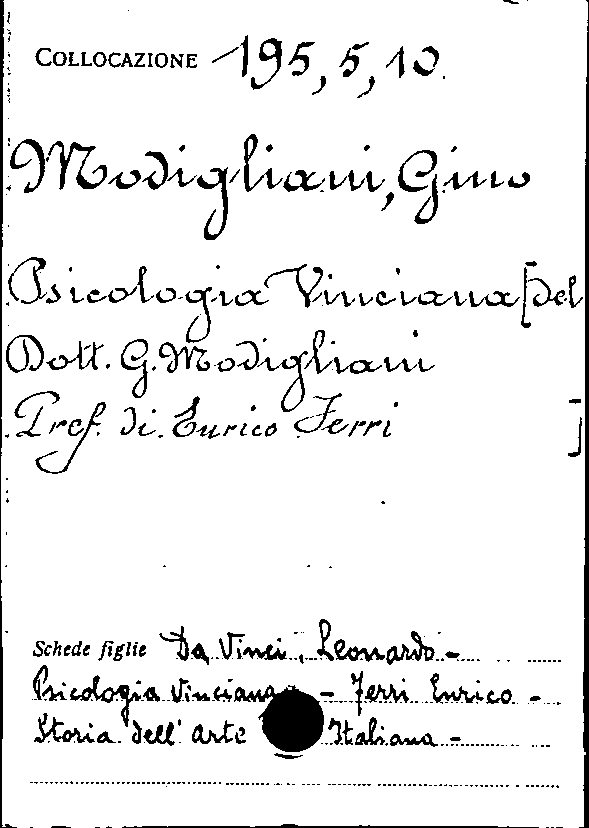 COLLOCAZIONE 195,5,10
Modigliani, Gino
Psicologia Vinciana [del
Dott. G. Modigliani
Pref. di Enrico Ferri ]
Schede figlie Da Vinci, Leonardo -
Psicologia Vinciana - Ferri Enrico -
Storia dell' Arte Italiana -